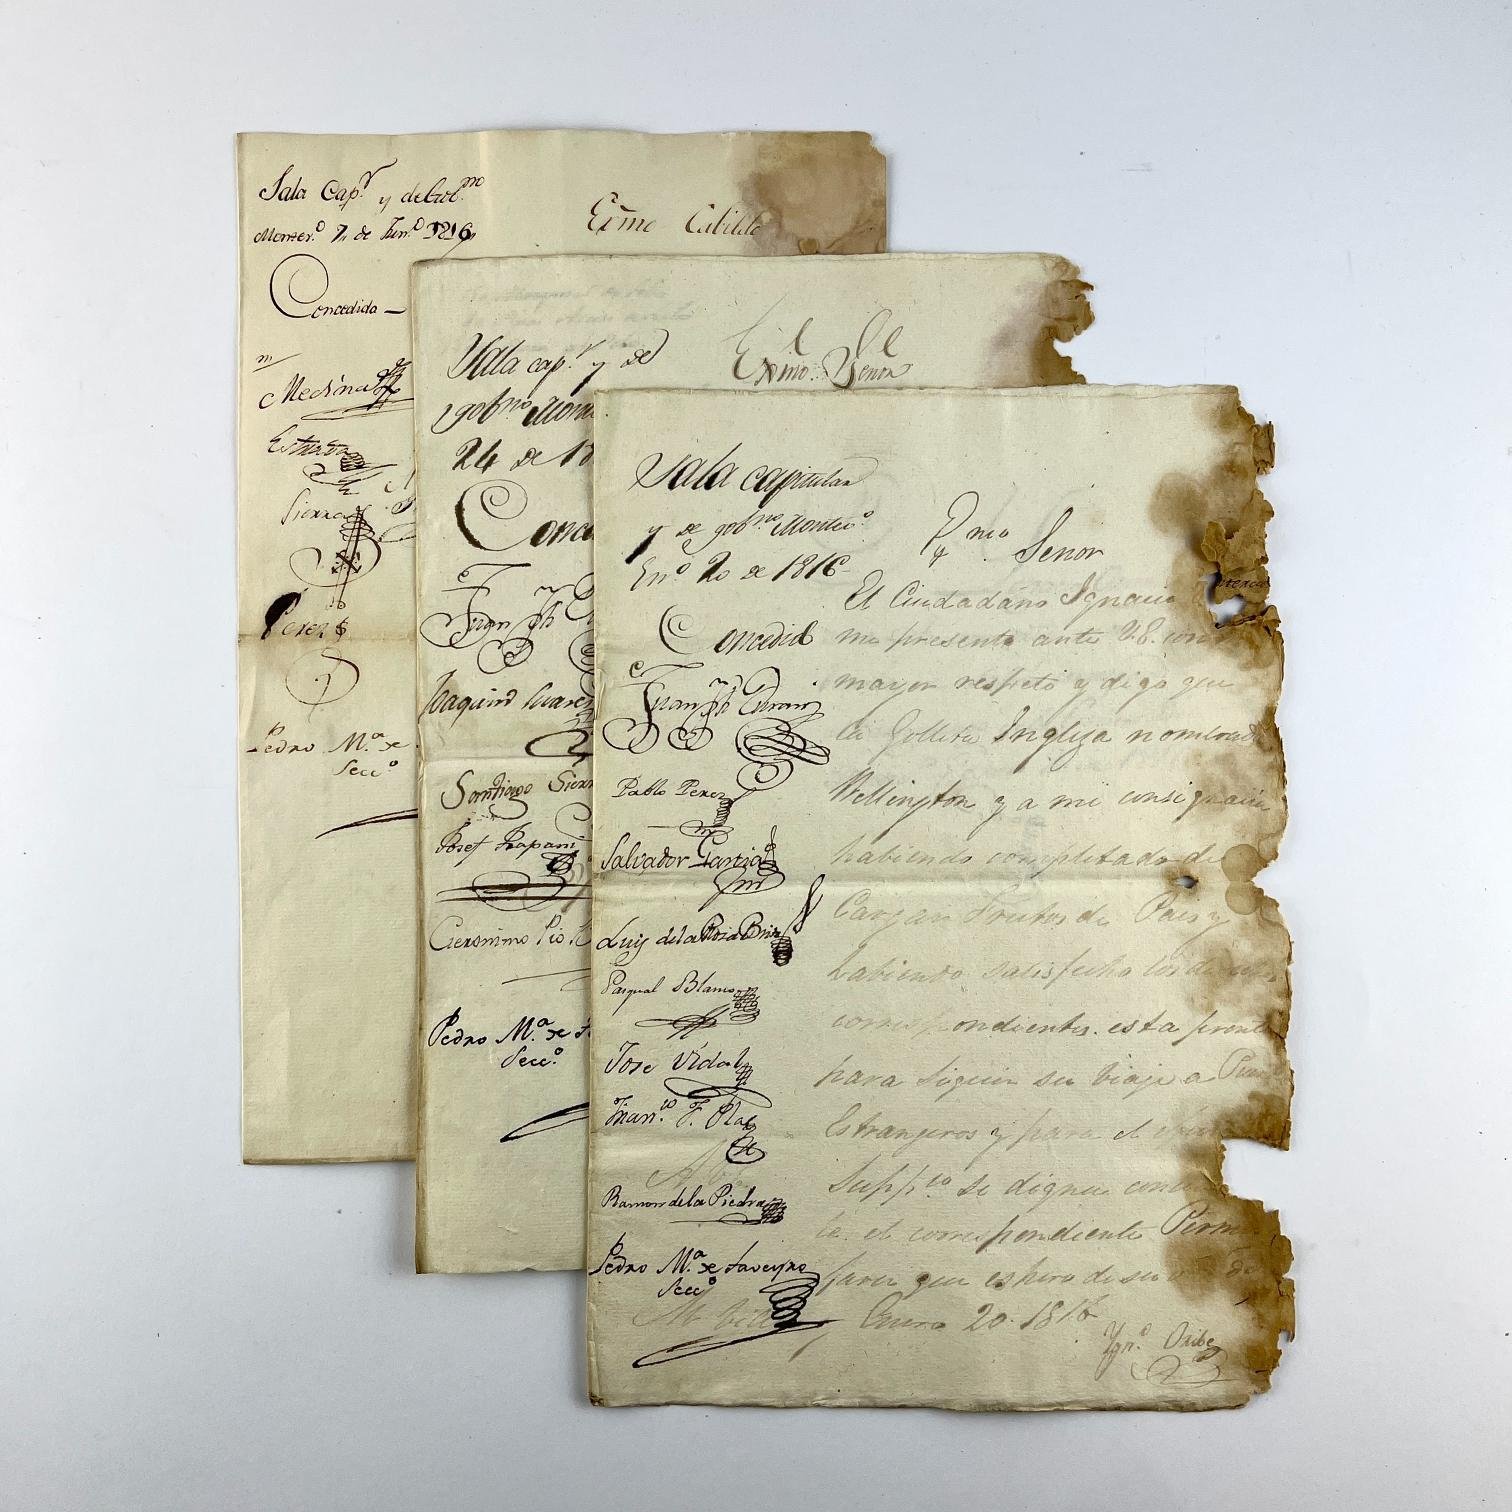 Sala Cap.r y de Gob.no
Montev.o 7 de Jun.o 1816
Exmo Cabildo
Concedida
Medina
Estrada
Sierra
Perez
Pedro M.a de
Secc.o
Sala cap.r y de
gob.no Mont
24 de 18
Exmo. Señor
Conce
Juan Jph
Joaquin Suarez
Santiago Sierra
Josef Trapani
Geronimo Pio
Pedro M.a de
Secc.o
Sala capitular
y de gob.no Montev.o
En.o 20 de 1816
Exmo. Señor
Concedid
Juan Jph Duran
Pablo Perez
Salvador Garcia
Luis de la Rosa Brito
Pasqual Blanco
Jose Vidal
Fran.co F. Pla
Ramon de la Piedra
Pedro M.a de Taveyro
Secc.o
El Ciudadano Ignacio
me presento ante V.E. con
mayor respeto y digo que
la Golleta Ingleza nombrada
Wellington y a mi consignacion
habiendo completado de
Cargar Frutos de Pais y
habiendo satisfecho los
correspondientes. esta pronta
para siguir su viaje a
Estrangeros y para el
Supp.co se digne
le el correspondiente
favor que espero de su
Enero 20. 1816
Ygn.o Oribe